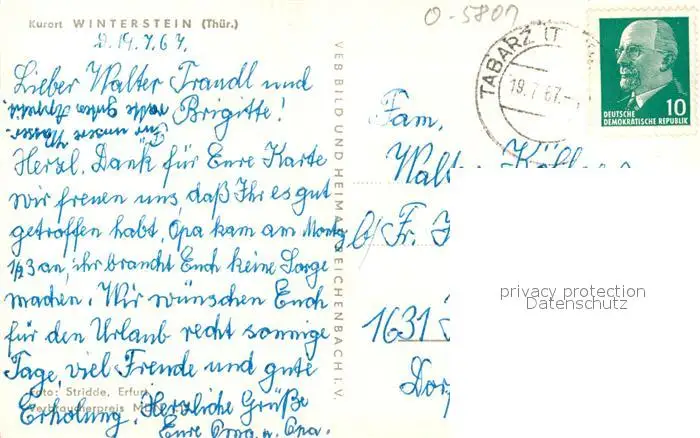 Kurort WINTERSTEIN (Thür.)
D. 19.7.67.
Lieber Walter Traudl und
Brigitte!
Herzl. Dank für Eure Karte
wir freuen uns, daß Ihr es gut
getroffen habt, Opa kam am Montg
1/23 an, ihr braucht Euch keine Sorge
machen. Wir wünschen Euch
für den Urlaub recht sonnige
Tage, viel Freude und gute
Erholung. Herzliche Grüße
Eure Oma u. Opa.
Foto: Stridde, Erfurt
Verbraucherpreis
VEB BILD UND HEIMAT REICHENBACH I. V.
O-5801
TABARZ (T
19.7.67.-
DEUTSCHE
DEMOKRATISCHE REPUBLIK
10
Fam.
Walt
b/ Fr.
1631
Dor
privacy protection
Datenschutz